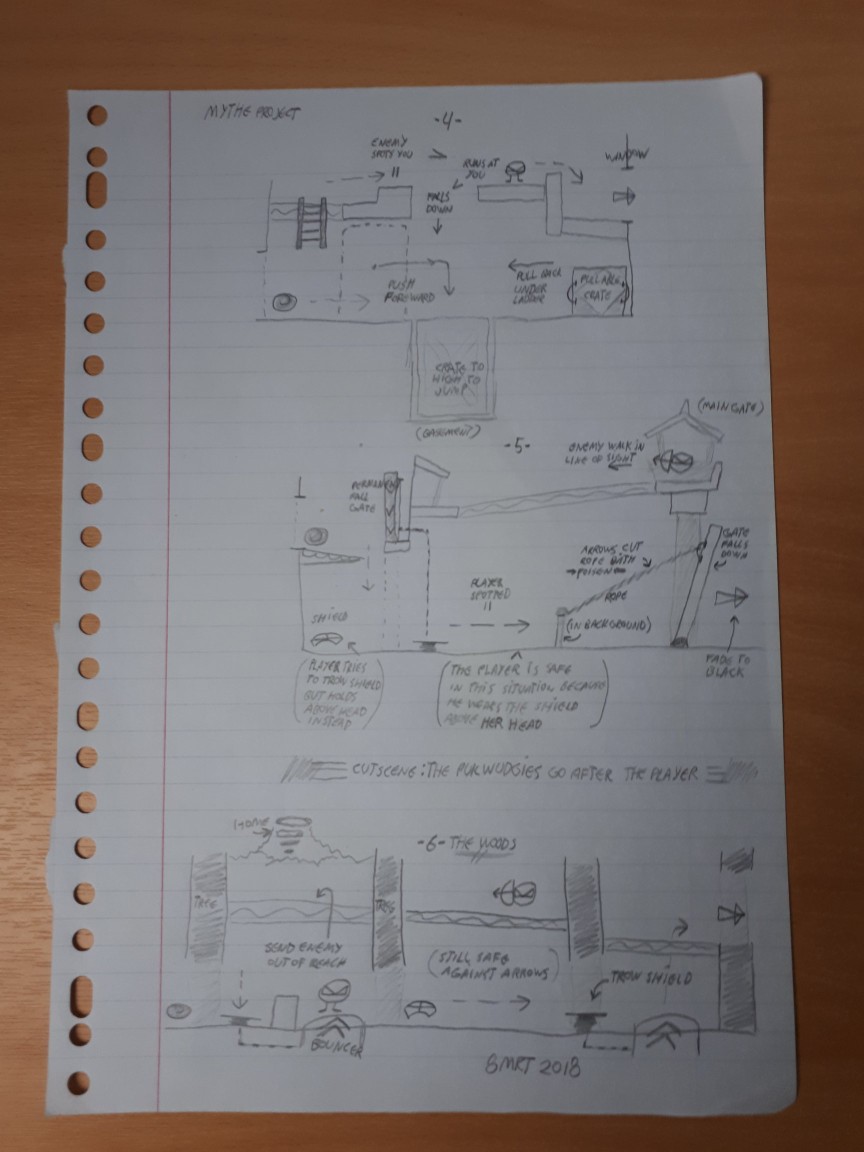 MYTHE PROJECT
-4-
ENEMY
SPOTS YOU
RUNS AT
YOU
WINDOW
FALLS
DOWN
PUSH
FOREWARD
PULL BACK
UNDER
LADDER
PULLABLE
CRATE
CRATE TO
HIGH TO
JUMP
(BASEMENT)
-5-
(MAIN GATE)
ENEMY WALK IN
LINE OF SIGHT
PERMANENT
FALL
GATE
ARROWS CUT
ROPE WITH
POISON
GATE
FALLS
DOWN
ROPE
PLAYER
SPOTTED
!!
SHIELD
(IN BACKGROUND)
FADE TO
BLACK
(PLAYER TRIES
TO TROW SHIELD
BUT HOLDS
ABOVE HEAD
INSTEAD)
(THE PLAYER IS SAFE
IN THIS SITUATION BECAUSE
HE WEARS THE SHIELD
ABOVE HER HEAD)
CUTSCENE: THE PUKWUDGIES GO AFTER THE PLAYER
HOME
-6- THE WOODS
TREE
TREE
SEND ENEMY
OUT OF REACH
(STILL SAFE
AGAINST ARROWS)
TROW SHIELD
BOUNCER
8 MRT 2018